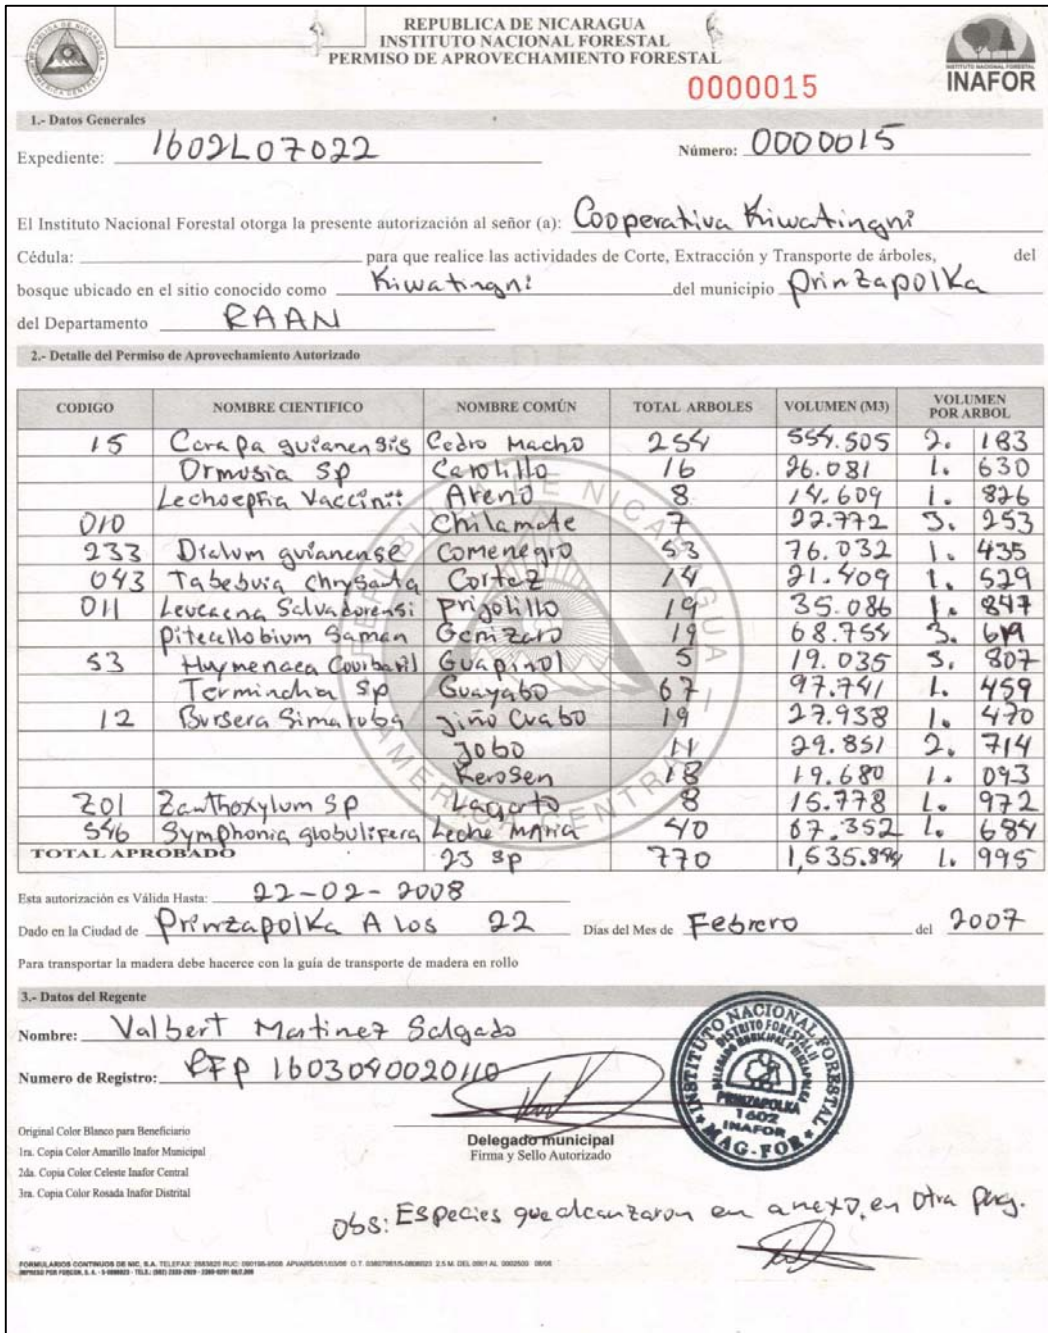 REPUBLICA DE NICARAGUA
INSTITUTO NACIONAL FORESTAL
PERMISO DE APROVECHAMIENTO FORESTAL
0000015
INSTITUTO NACIONAL FORESTAL
INAFOR
1.- Datos Generales
Expediente: 1602L07022 Número: 0000015
El Instituto Nacional Forestal otorga la presente autorización al señor (a): Cooperativa Kiwatingni
Cédula: para que realice las actividades de Corte, Extracción y Transporte de árboles, del
bosque ubicado en el sitio conocido como Kiwatingni del municipio Prinzapolka
del Departamento RAAN
2.- Detalle del Permiso de Aprovechamiento Autorizado
CODIGO NOMBRE CIENTIFICO NOMBRE COMÚN TOTAL ARBOLES VOLUMEN (M3) VOLUMEN POR ARBOL
15 Carapa guianensis Cedro Macho 254 554.505 2. 183
Ormusia Sp Carolillo 16 26.081 1. 630
Lechoepria Vaccinii Areno 8 14.609 1. 826
010 Chilamate 7 22.772 3. 253
233 Dialum guianense Comenegro 53 76.032 1. 435
043 Tabebuia Chrysanta Cortez 14 21.409 1. 529
011 Leucaena Salvadorensi Frijolillo 19 35.086 1. 847
Pitecellobium Saman Genizaro 19 68.758 3. 619
53 Huymenaea Courbaril Guapinol 5 19.035 3. 807
Terminchia Sp Guayabo 67 97.741 1. 459
12 Bursera Simaruba Jiño Cuabo 19 27.938 1. 470
Jobo 11 29.851 2. 714
Kerosen 18 19.680 1. 093
201 Zanthoxylum Sp Lagarto 8 15.778 1. 972
546 Symphonia globulifera Leche MAria 40 67.352 1. 684
TOTAL APROBADO 23 sp 770 1,535.894 1. 995
Esta autorización es Válida Hasta: 22-02-2008
Dado en la Ciudad de Prinzapolka A los 22 Días del Mes de Febrero del 2007
Para transportar la madera debe hacerce con la guía de transporte de madera en rollo
3.- Datos del Regente
Nombre: Valbert Martinez Salgado
Numero de Registro: RFP 1603040020110
INSTITUTO NACIONAL FORESTAL
DISTRITO FORESTAL II
DELEGADO MUNICIPAL PRINZAPOLKA
PRINZAPOLKA
1602
INAFOR
MAG-FOR
Original Color Blanco para Beneficiario
1ra. Copia Color Amarillo Inafor Municipal
2da. Copia Color Celeste Inafor Central
3ra. Copia Color Rosada Inafor Distrital
Delegado municipal
Firma y Sello Autorizado
Obs: Especies que alcanzaron en anexo, en otra pag.
FORMULARIOS CONTINUOS DE NIC, S.A.
REPUBLICA DE NICARAGUA AMERICA CENTRAL